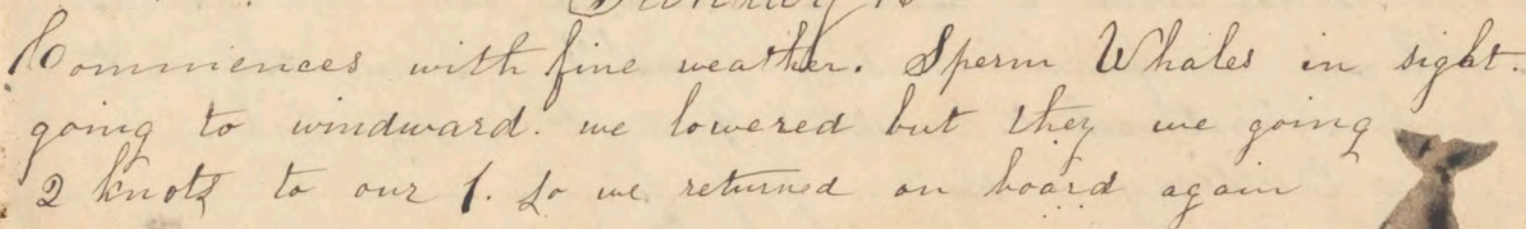 Commences with fine weather. Sperm Whales in sight.
going to windward. we lowered but they we going
2 knots to our 1. So we returned on board again